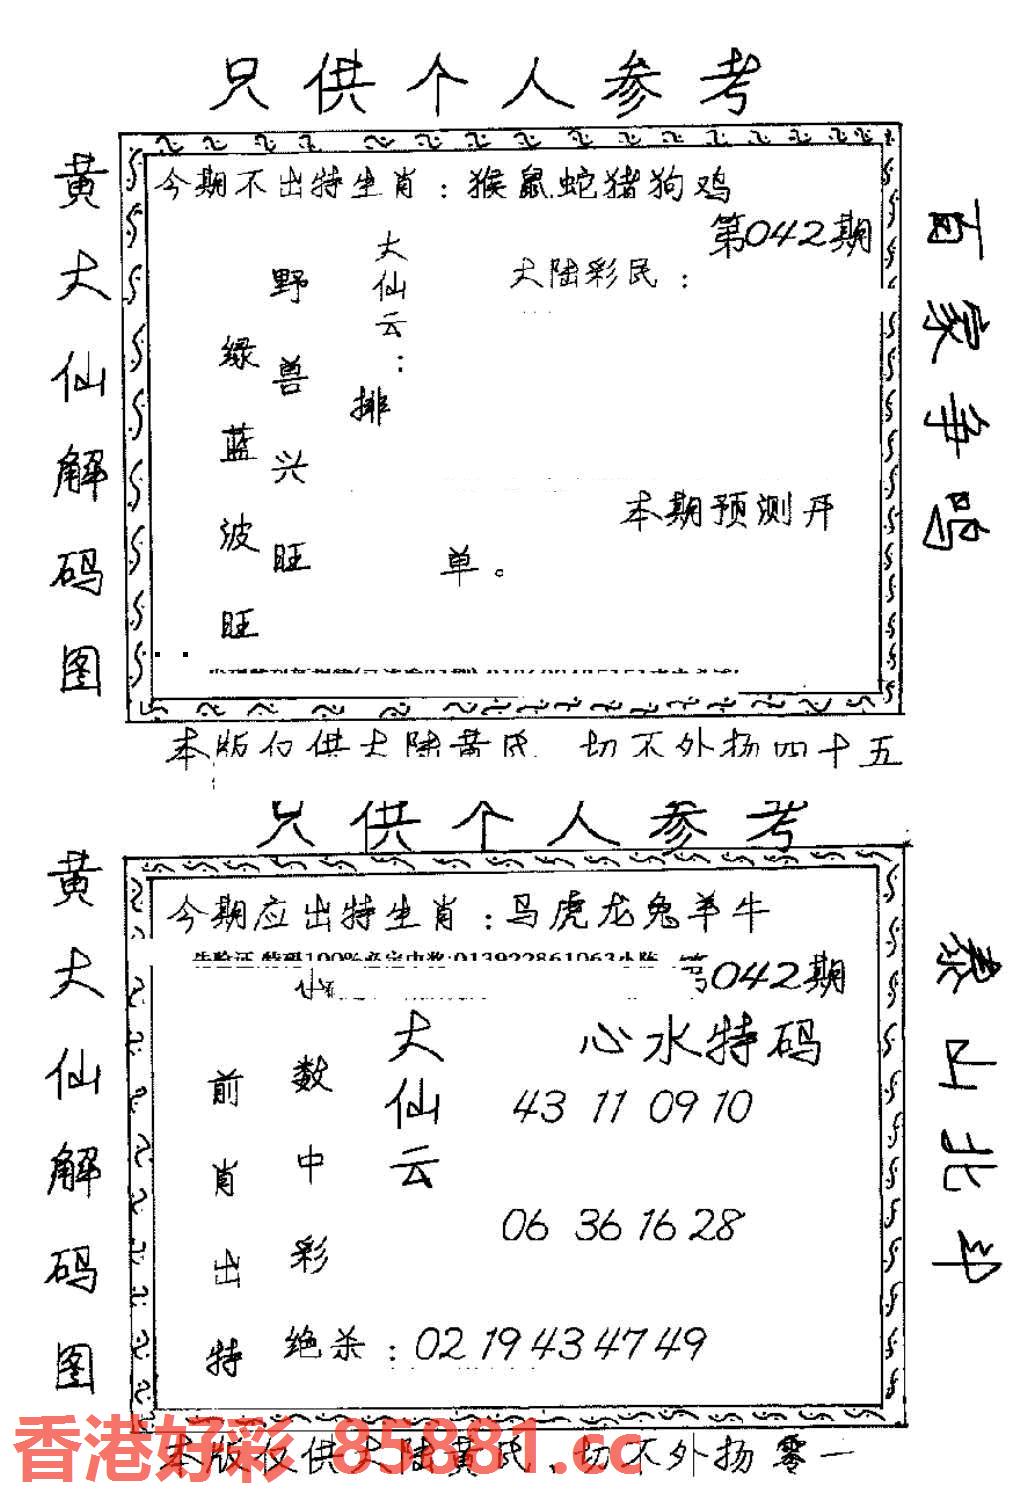 只供个人参考
黄大仙解码图
今期不出特生肖：猴鼠蛇猪狗鸡
第042期
百家争鸣
大陆彩民：
大仙云：
野兽兴旺
绿蓝波旺
排
本期预测开
单。
本版仅供大陆黄民 切不外扬四十五
只供个人参考
黄大仙解码图
今期应出特生肖：马虎龙兔羊牛
第042期
泰山北斗
心水特码
大仙云
43 11 09 10
数中彩
前肖出特
06 36 16 28
绝杀：02 19 43 47 49
香港好彩 85881.cc
本版仅供大陆黄民、切不外扬零一